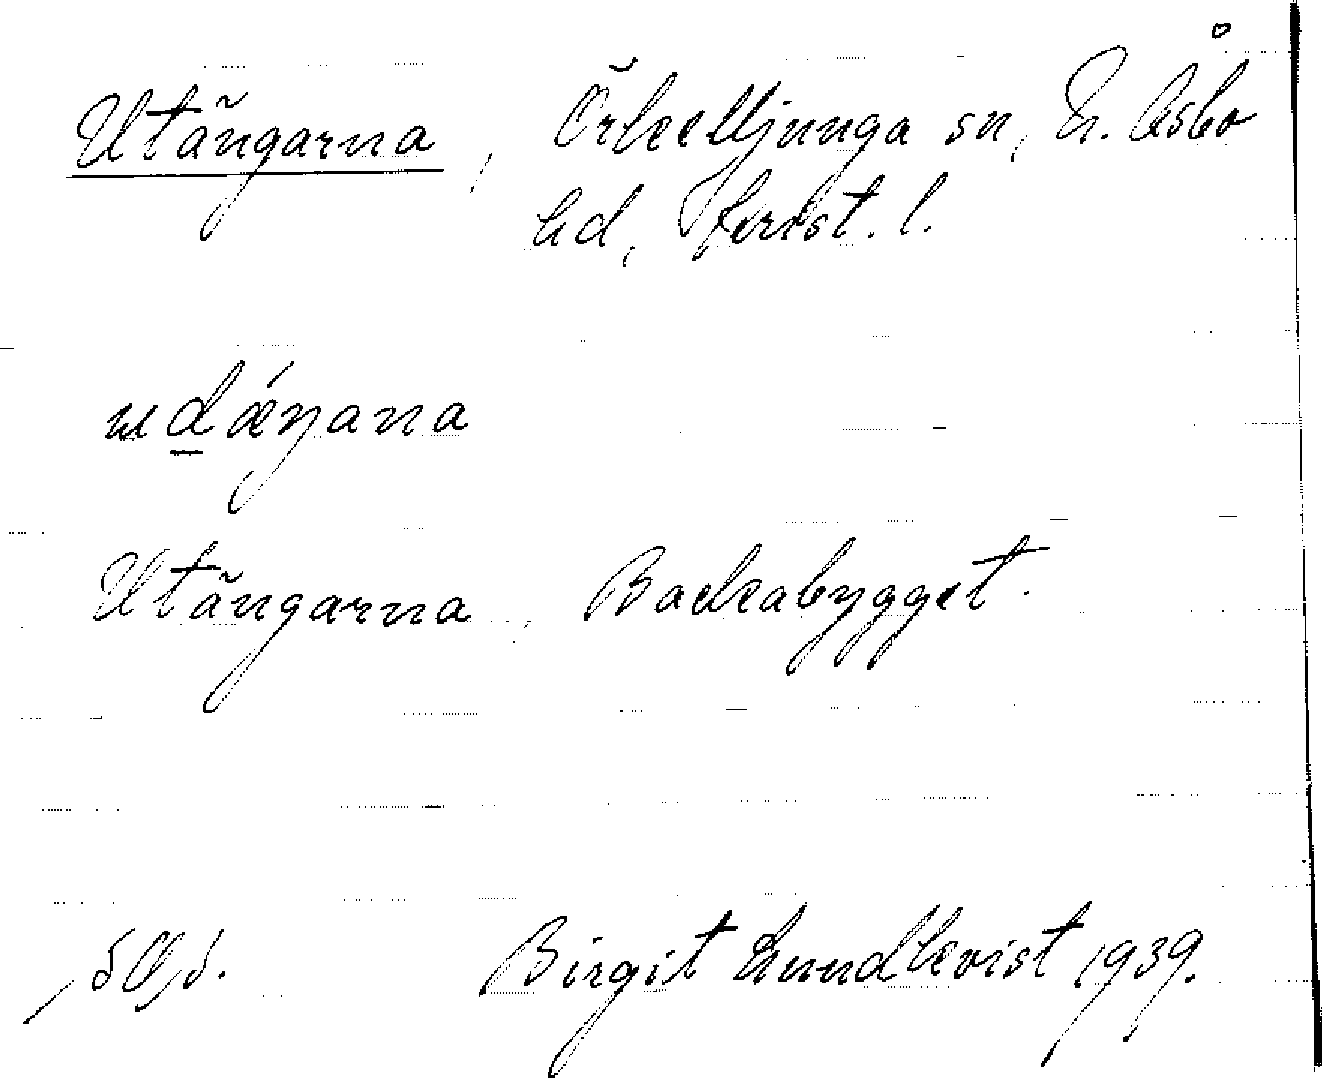 Utängarna, Örkelljunga sn, N. Åsbo
hd, Krist. l.
udǽŋana
Utängarna, Backabygget.
Birgit Lundkvist 1939.